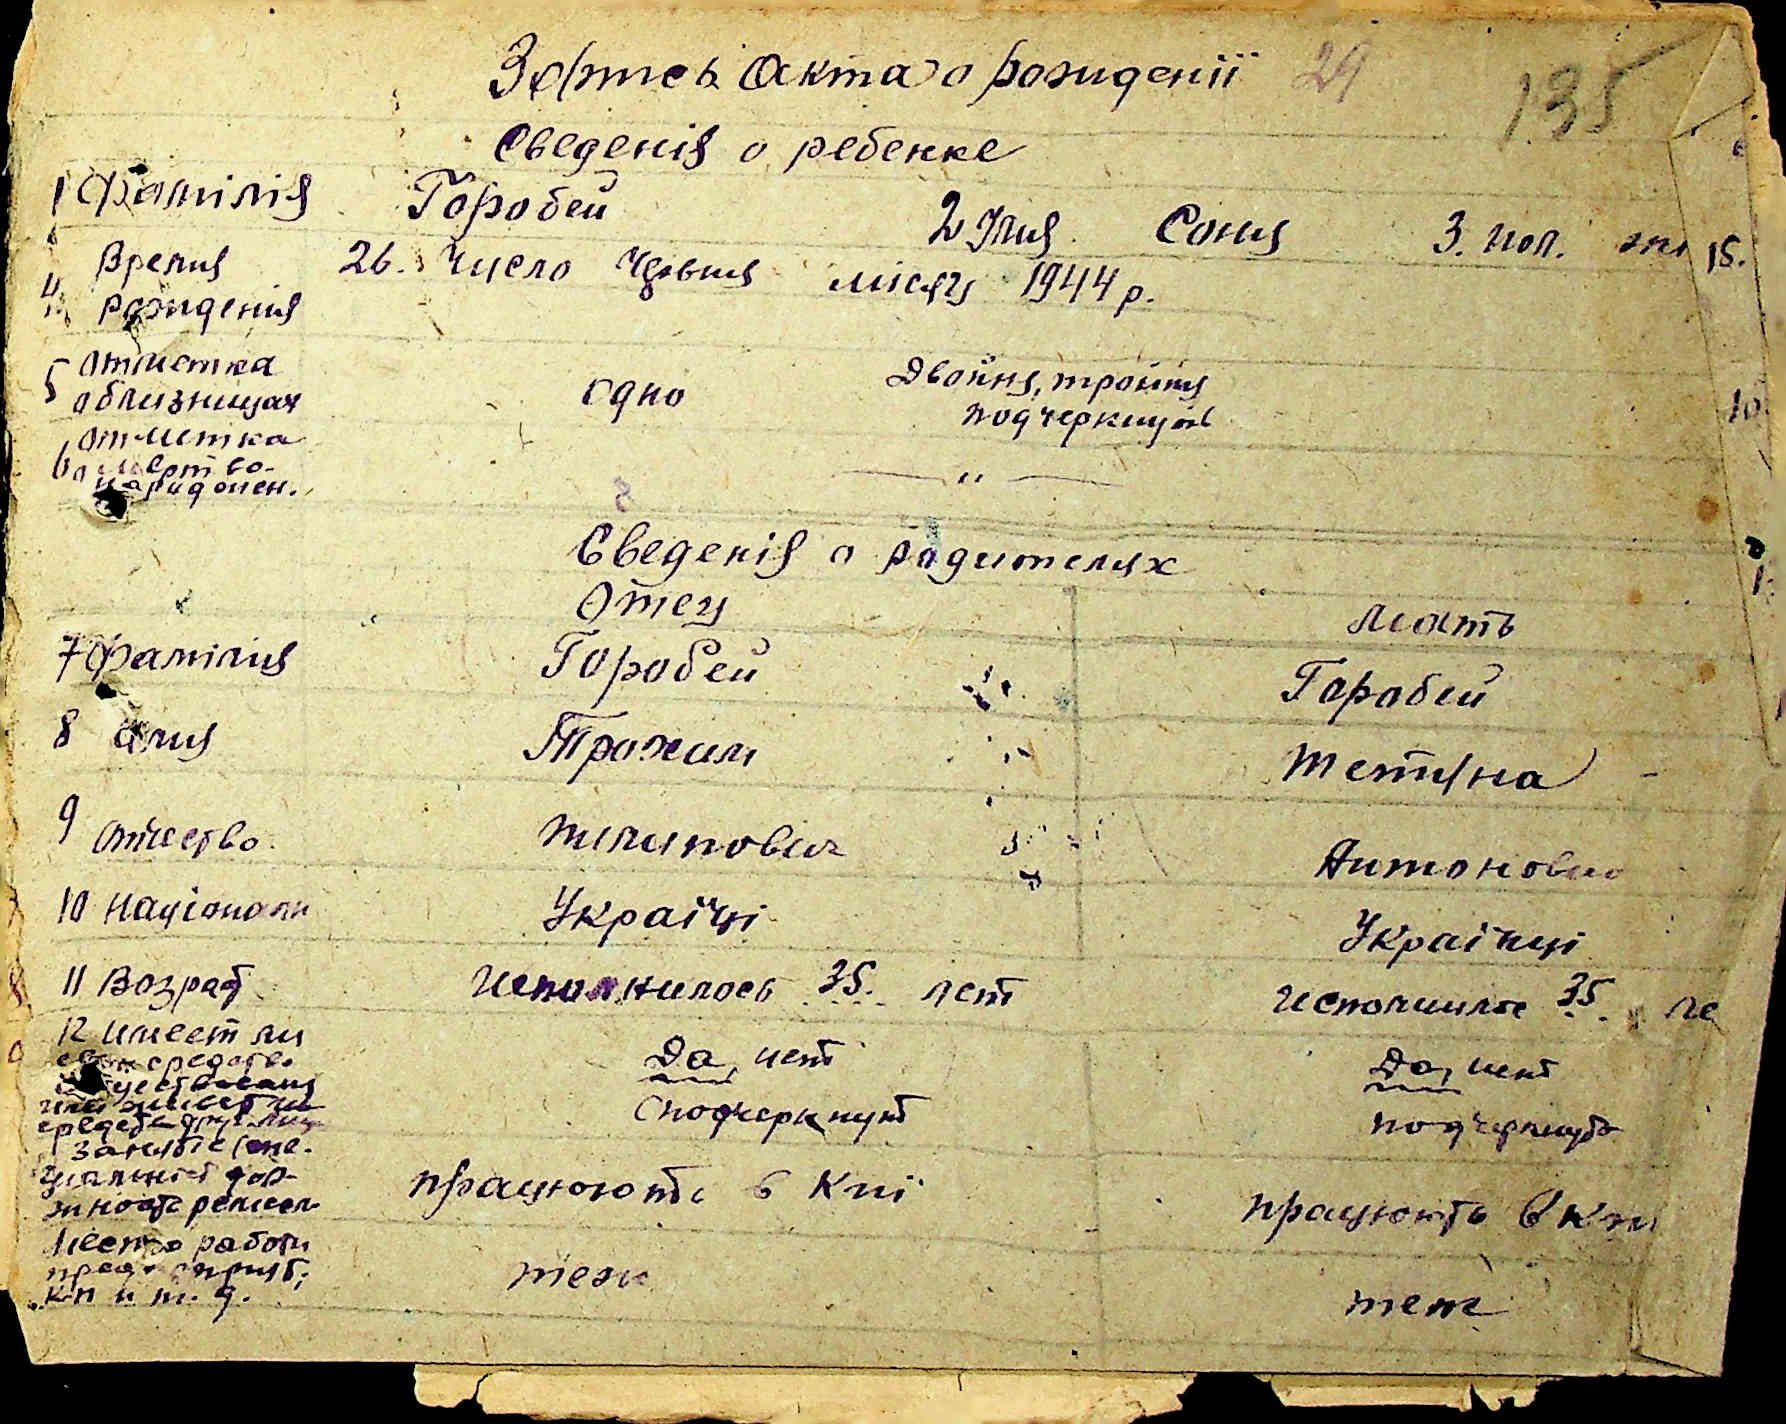 Запись Акта о рожиденіі 29 135
Сведенія о ребенке
1 Фамілія Горобей 2 Імя Соня 3. пол. жи
4. Время рождения 26. Число Червня місяця 1944 р.
5 Отметка о близнецах одно Двойня, тройня подчеркнуть
6 Отметка о мертво- народжен. — " —
Сведенія о родителях
Отец Мать
7 Фамілия Горобей Горобей
8 Имя Трохим Тетяна
9 Отчество Пилипович Антоновна
10 Націоналн Україці Українці
11 Возраст Исполнилось 35. лет Исполнилос 35. ле
12 Имеет ли Да, нет Да, нет
средства (подчеркнут подчеркнуто
занятіе (спе-
циальност дол-
жность ремесл. працюють в Кпі працюють в кп
Место работи
предприят; теж теж
кп и т. д.